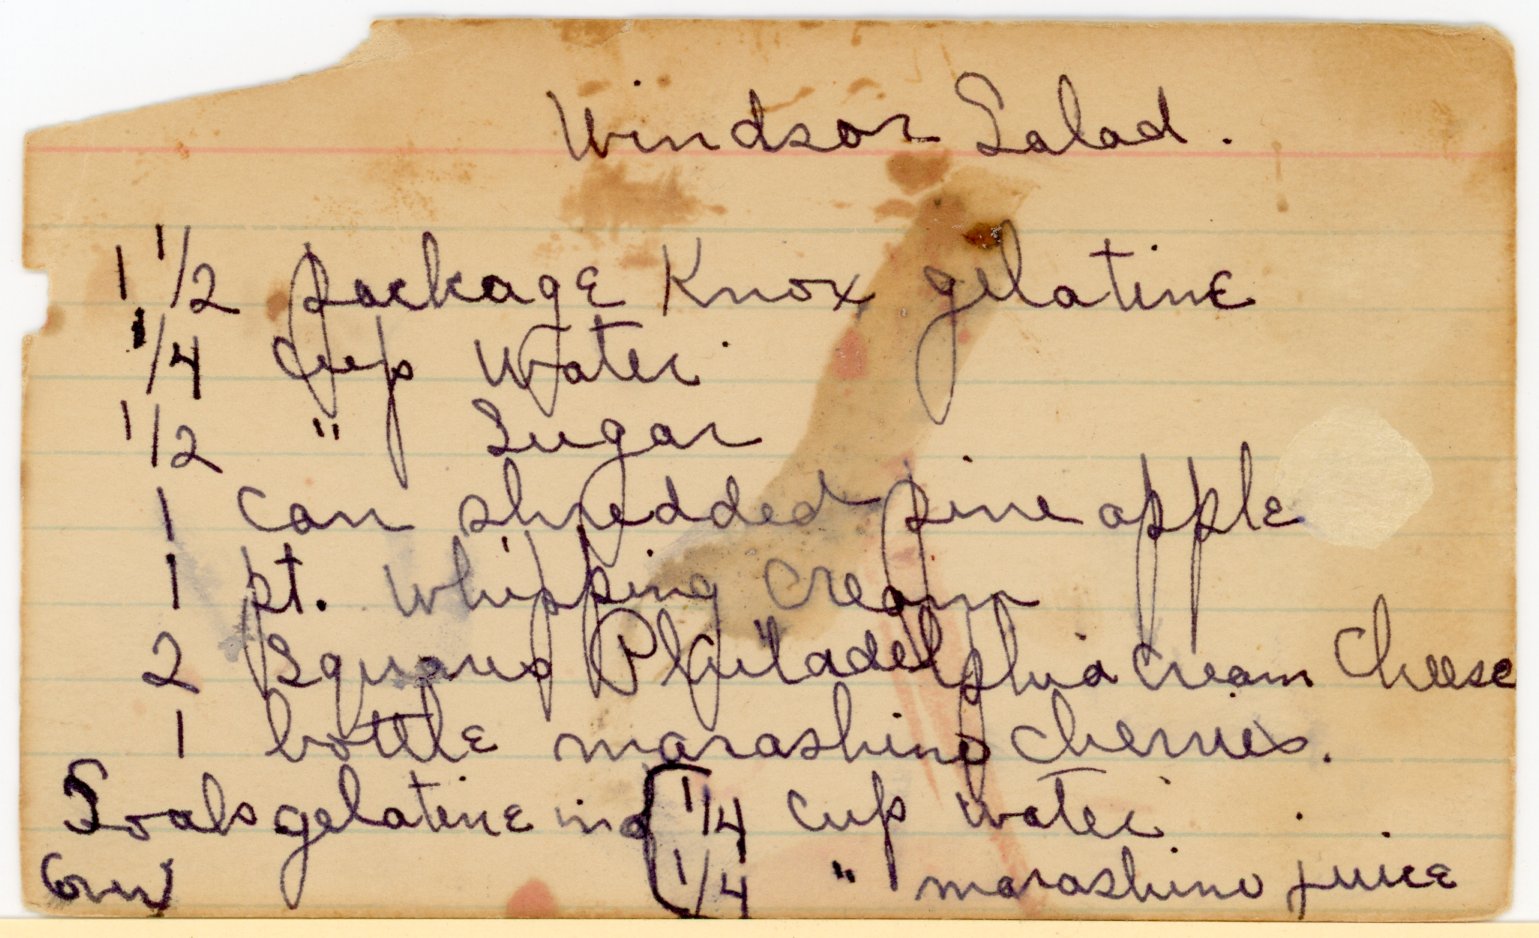 Windsor Salad.
1 1/2 package Knox gelatine
1/4 cup water
1/2 " Sugar
1 can shredded pineapple
1 pt. whipping cream
2 squares Philadelphia cream cheese
1 bottle marashino cherries.
Soak gelatine in { 1/4 cup water
1/4 " marashino juice